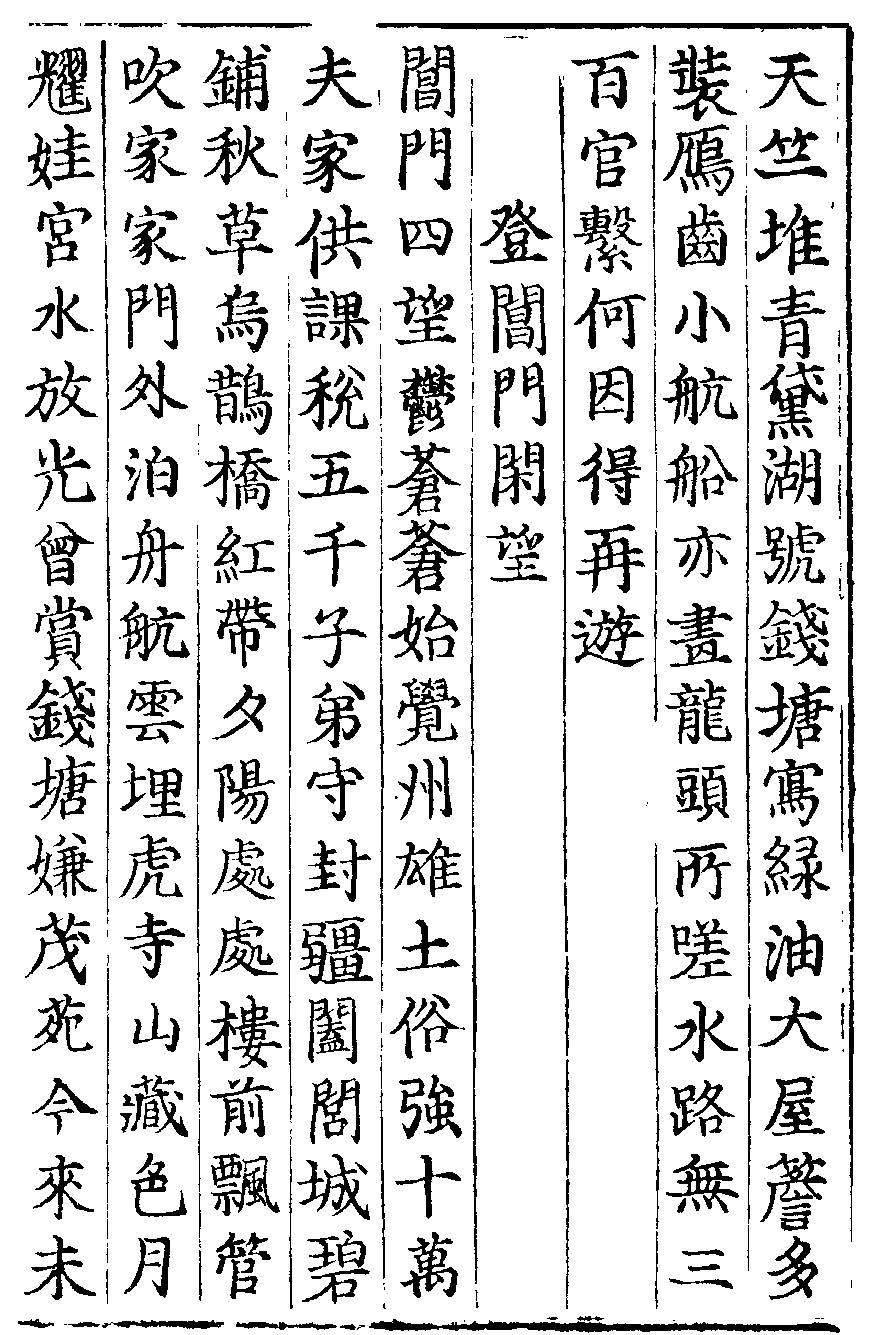 天竺堆青黛湖號錢塘寫緑油大屋簷多
裝鴈齒小航船亦畫龍頭所嗟水路無三
百官繫何因得再遊
登閶門閑望
閶門四望鬱蒼蒼始覺州雄土俗強十萬
夫家供課稅五千子弟守封疆闔閭城碧
鋪秋草烏鵲橋紅帶夕陽處處樓前飄管
吹家家門外泊舟航雲埋虎寺山藏色月
耀娃宮水放光曾賞錢塘嫌茂苑今來未